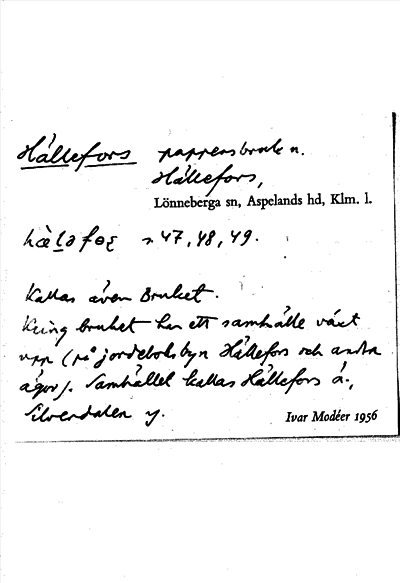 Hällefors pappersbruk n.
Hällefors,
Lönneberga sn, Aspelands hd, Klm. l.
s. 47, 48, 49.
Kallas även Bruket.
Kring bruket har ett samhälle växt
upp (på jordeboksbyn Hällefors och andra
ägor). Samhället kallas Hällefors ä.,
Silverdalen y.
Ivar Modéer 1956